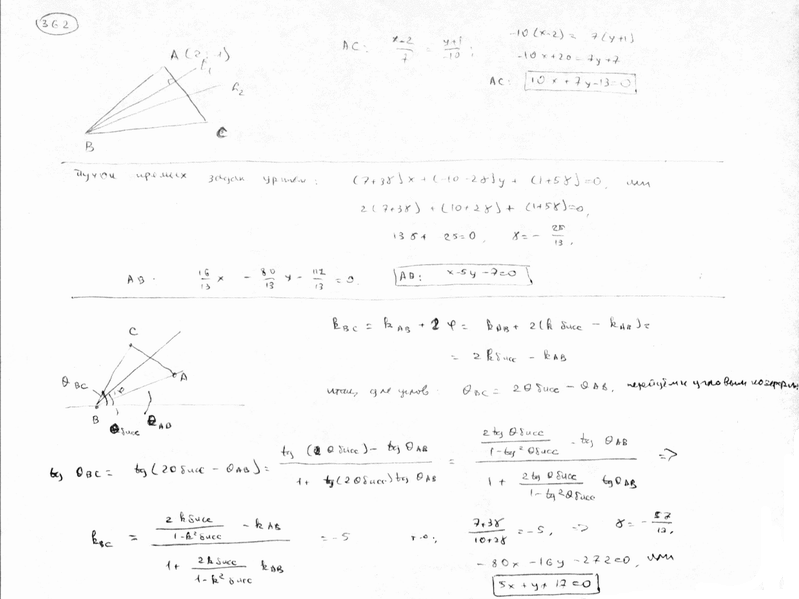 362
A (2; -1)
h₁
h₂
B
C
AC: (x-2)/7 = (y+1)/-10 ;
-10(x-2) = 7(y+1)
-10x+20=7y+7
AC: 10x+7y-13=0
Пучок прямых задан урнем: (7+3γ)x + (-10-2γ)y + (1+5γ)=0, или
2(7+3γ) + (10+2γ) + (1+5γ)=0,
13γ+ 25=0, γ= - 25/13,
AB: 16/13 x - 80/13 y - 112/13 = 0. AB: x-5y-7=0
C
A
B
θ BC
θ бисс
θ AB
k BC = k AB + 2 φ = k AB + 2(k бисс - k AB)=
= 2k бисс - k AB
для углов: θ BC = 2θ бисс - θ AB,
tg θ BC = tg(2θ бисс - θ AB) = (tg (2 θ бисс) - tg θ AB)/(1 + tg(2θ бисс) tg θ AB) = ((2 tg θ бисс)/(1-tg² θ бисс) - tg θ AB)/(1 + (2 tg θ бисс)/(1-tg² θ бисс) tg θ AB) =>
k BC = ((2 k бисс)/(1-k² бисс) - k AB)/(1 + (2k бисс)/(1-k² бисс) k AB) = -5 т.о. (7+3γ)/(10+2γ) = -5, => γ = - 57/13,
-80x -16y -272=0, или
5x+y+17=0